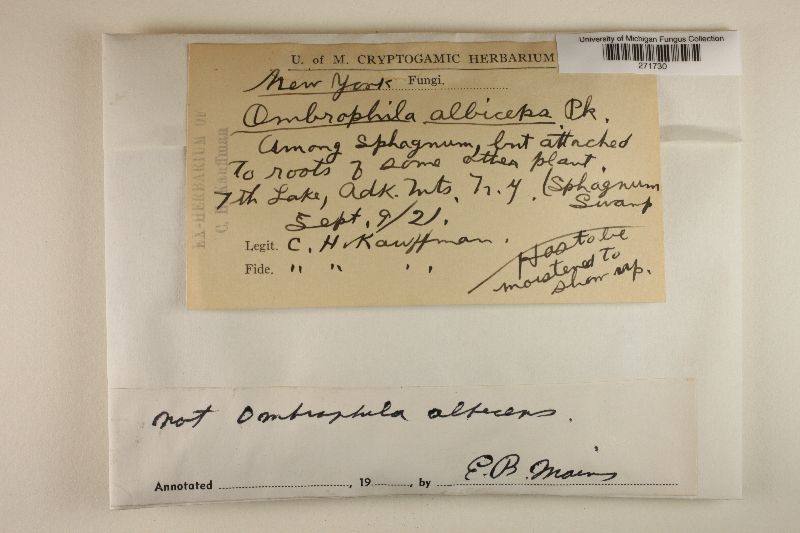 University of Michigan Fungus Collection
271730
U. of M. CRYPTOGAMIC HERBARIUM
New York Fungi.
Ombrophila albiceps Pk.
Among sphagnum, but attached
to roots of some other plant.
7th Lake, Adk. Mts. N.Y. (Sphagnum
Swamp
Sept. 9/21.
Legit. C. H. Kauffman.
Fide. " " " "
Has to be
moistened to
show up.
EX-HERBARIUM OF
C. H. Kauffman
not Ombrophila albiceps.
Annotated , 19 , by E.B. Mains